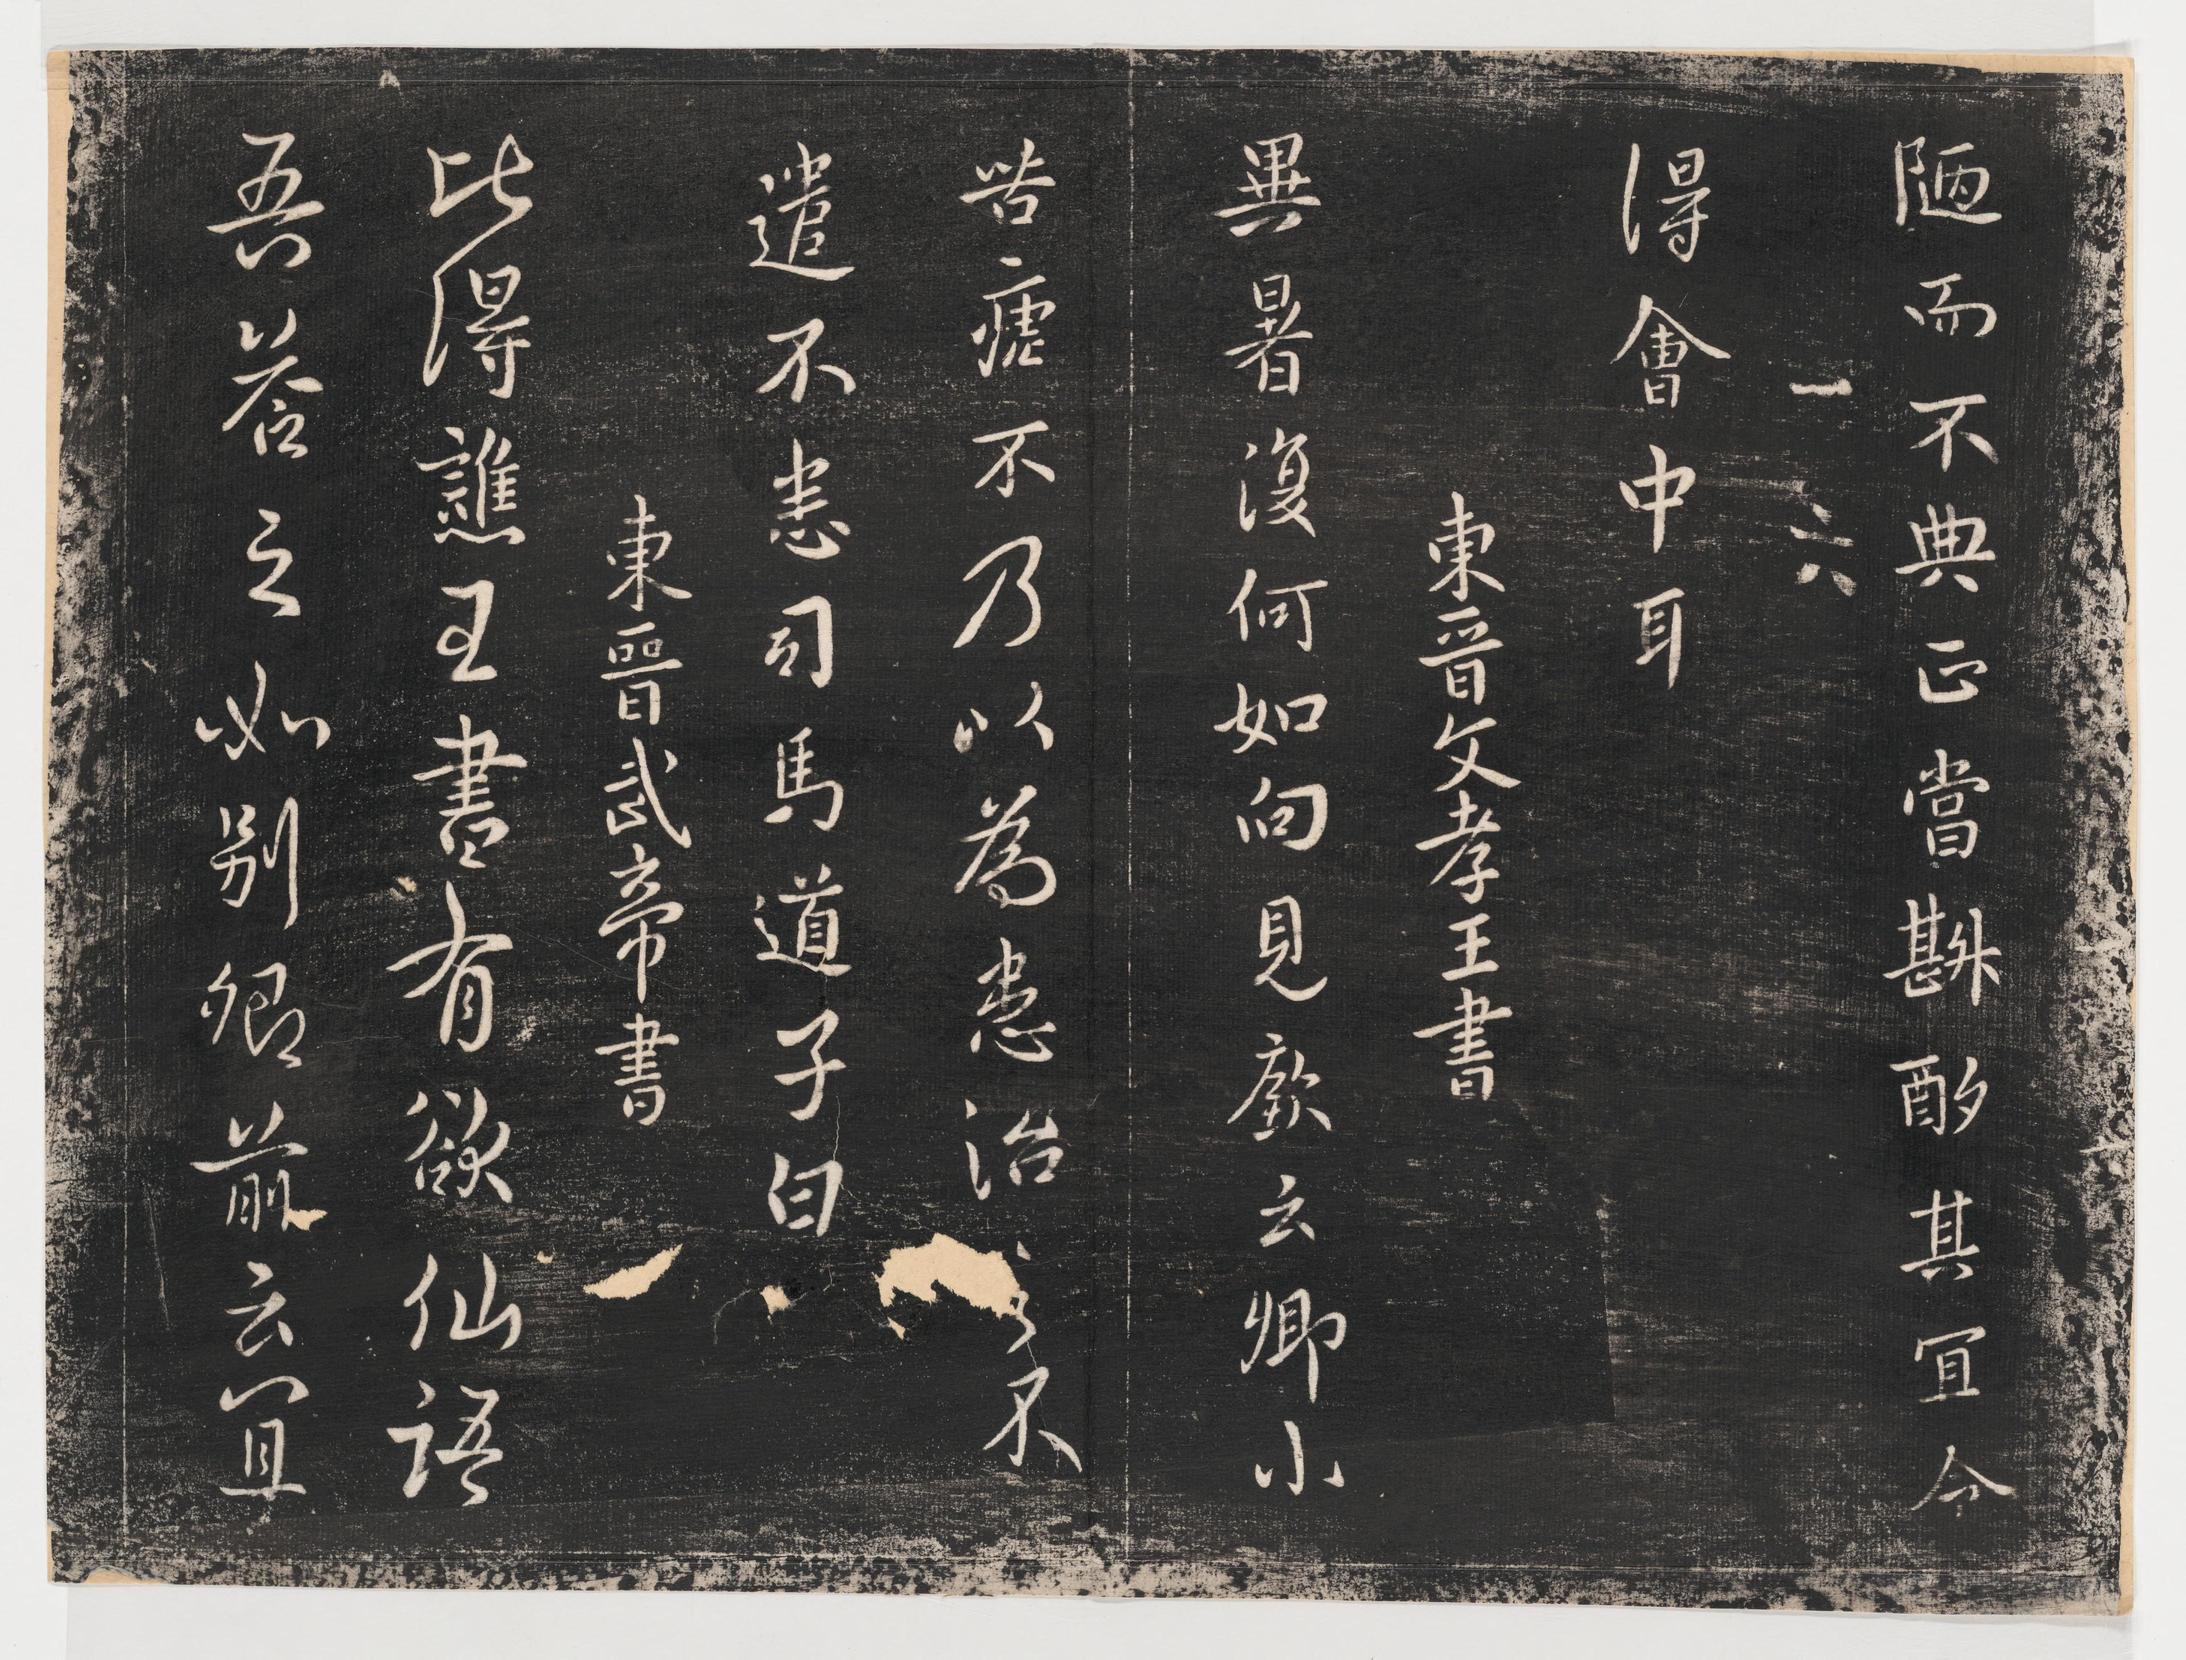 陋而不典正當斟酌其宜令
一 六
得會中耳
東晉文孝王書
異暑復何如向見廞云卿小
苦瘧不乃以為患治之不
遣不恙司馬道子白
東晉武帝書
比得譙王書有欲仙語
吾荅之如別卿前云宜